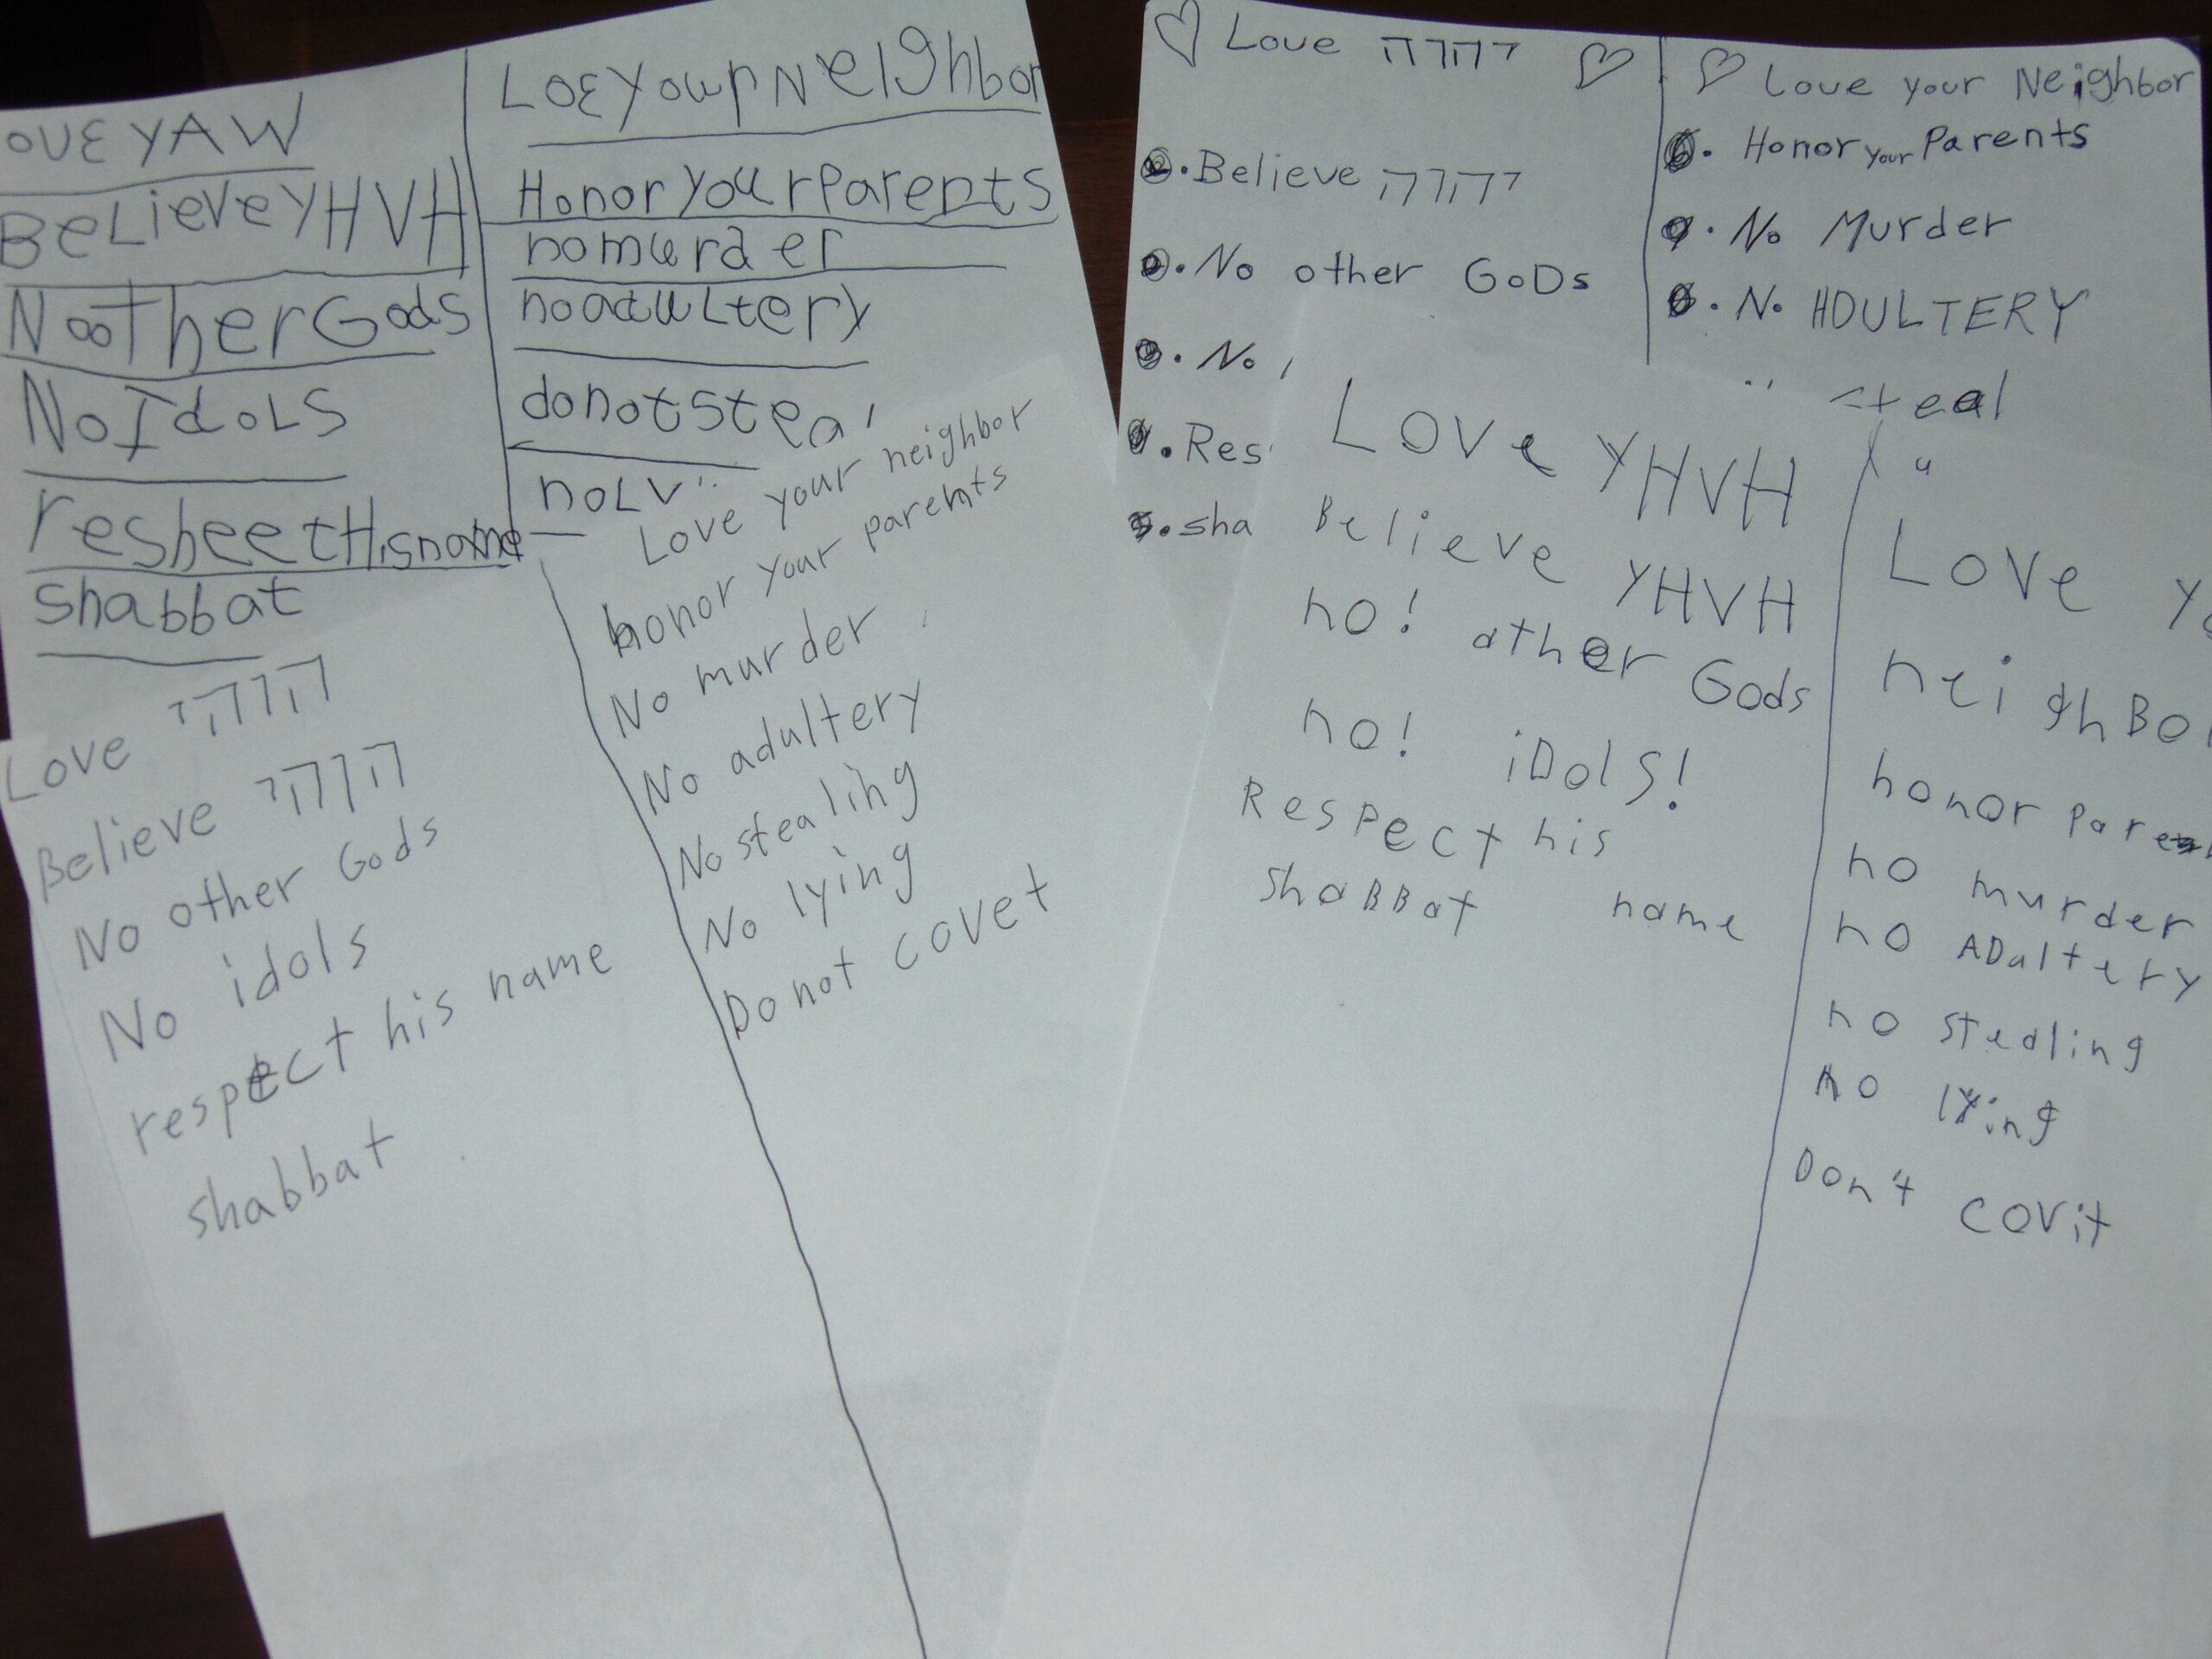 OVE YAW
BeLieve YHVH
No oTher Gods
No IdoLS
resbeect His name
Shabbat
LOEYoupNeIghbor
Honor your Parents
no murder
no adultery
do not Steal
no
Love יהוה
Believe יהוה
No other Gods
No idols
respect his name
shabbat
Love your neighbor
honor your parents
No murder
No adultery
No stealing
No lying
Do not covet
♡ Love יהוה ♡
Believe יהוה
No other GoDs
No
Res
5. sha
♡ Love your Neighbor
Honor your Parents
No Murder
No ADULTERY
steal
LOVe YHVH
Believe YHVH
no! ather Gods
no! iDolS!
Respect his
name
ShaBBat
LOVe Yo
neighBo
honor Paren
no murder
no ADultery
no stealing
no lying
Don't covit